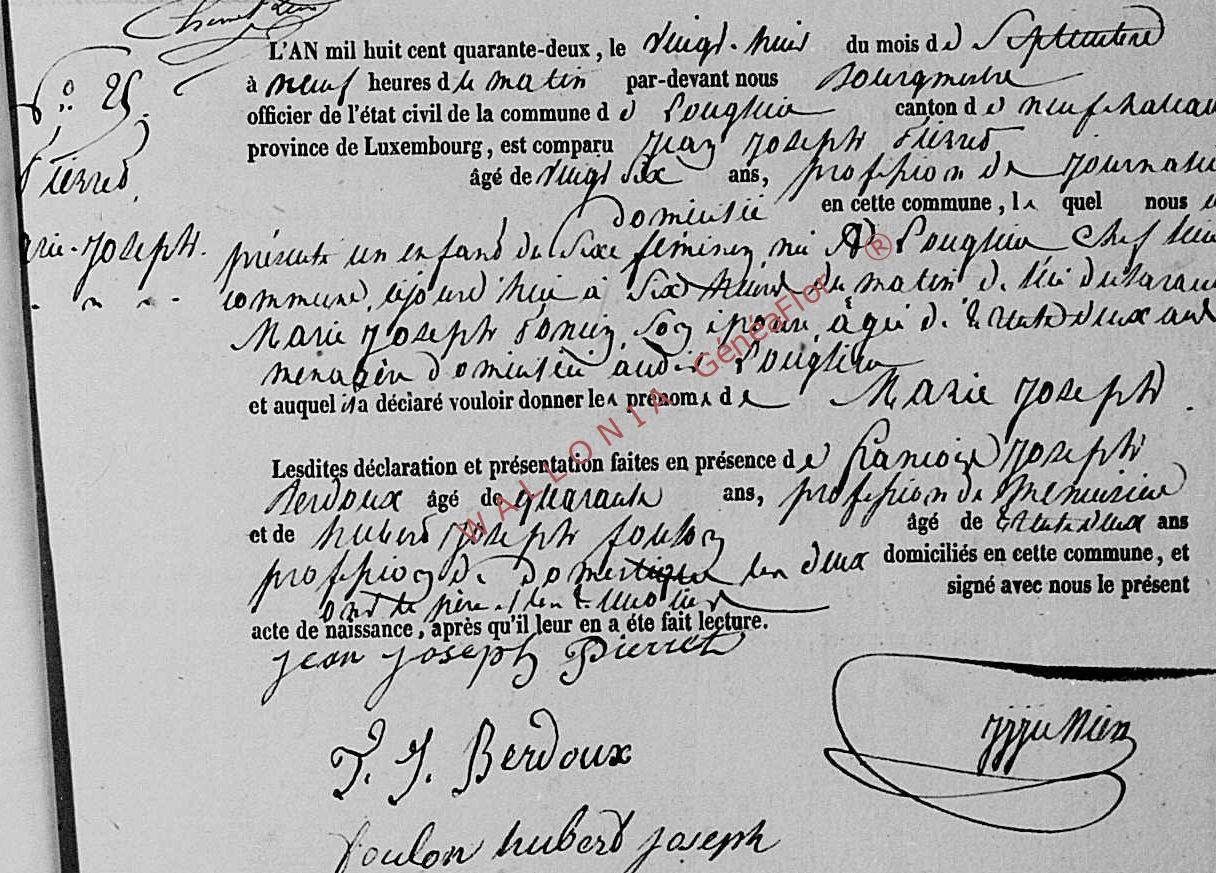 L'AN mil huit cent quarante-deux, le vingt-huit du mois de Septembre
N.° 25.
à neuf heures de matin par-devant nous Bourgmestre
officier de l'état civil de la commune de Longlier canton de neufchateau
province de Luxembourg, est comparu Jean Joseph Pierret
Pierret,
âgé de vingt six ans, profession de journalier
domicilié en cette commune, le quel nous a
Marie-Joseph. présenté un enfant du sexe féminin né à Longlier chef lieu
commune, cejourd'hui à six heures du matin de lui déclarant
Marie Joseph son épouse, agée de trente deux ans
menagère domiciliée audit Longlier
et auquel il a déclaré vouloir donner les prénoms de Marie Joseph.
Lesdites déclaration et présentation faites en présence de François Joseph
Berdoux âgé de quarante ans, profession de menuisier
et de hubert joseph foulon âgé de trente deux ans
profession de domestique les deux domiciliés en cette commune, et
ont le père et les témoins signé avec nous le présent
acte de naissance, après qu'il leur en a éte fait lecture.
Jean Joseph Pierret
F. J. Berdoux
foulon hubert joseph
WALLONIA GénéaFlor ®